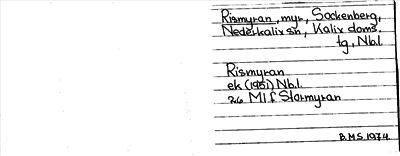 Rismyran, myr, Sockenberg,
Nederkalix sn, Kalix doms.
tg, Nbl.
Rismyran
ek (1951) Nbl.
26 Ml f Stormyran
B.M.S 1974.